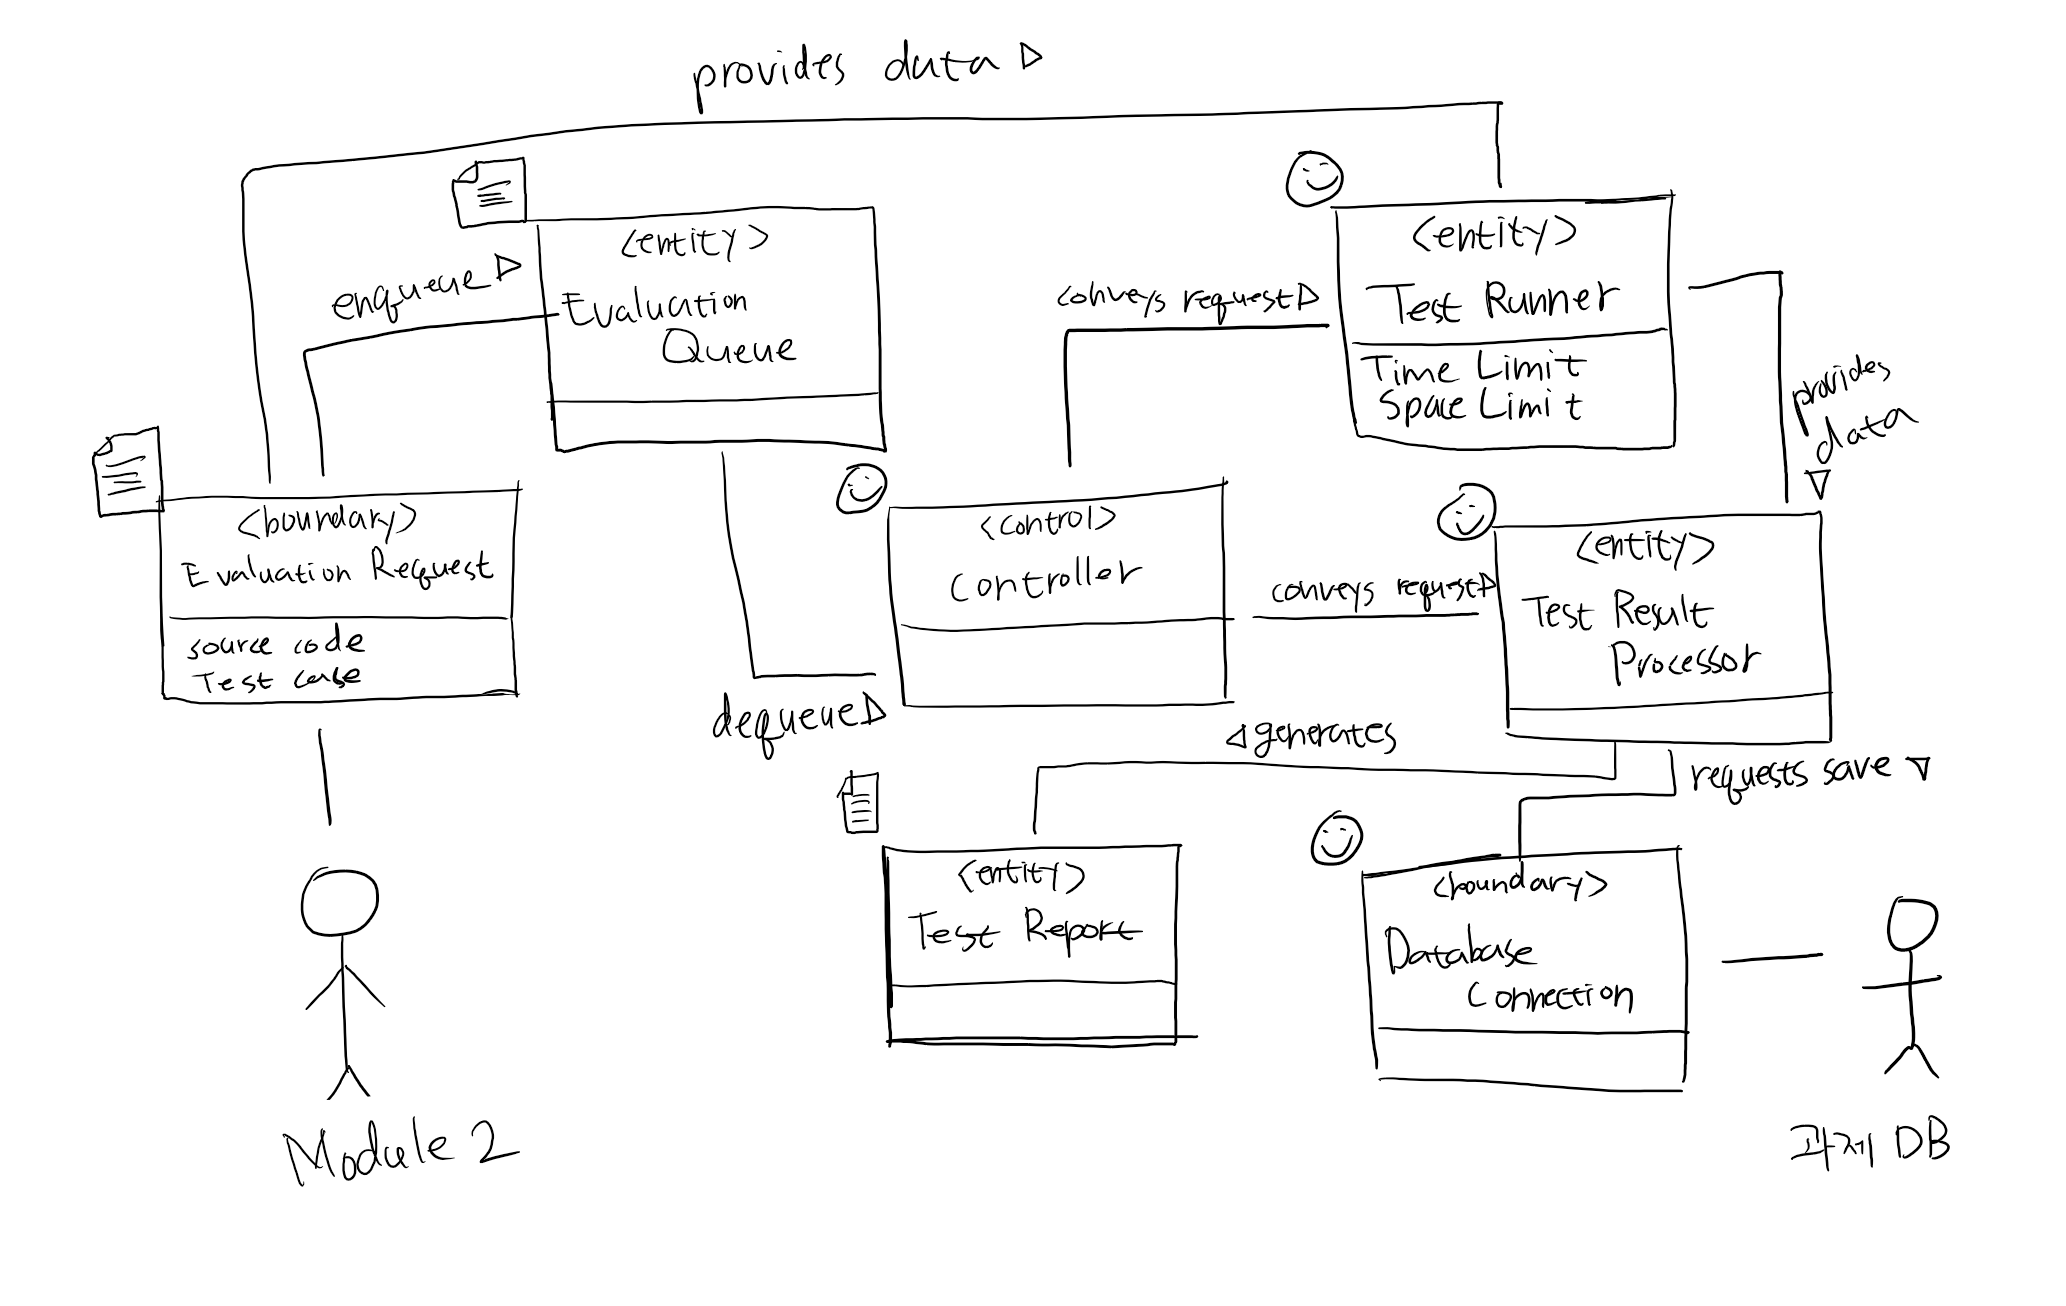 provides data ▷
<entity>
Evaluation
Queue
enqueue ▷
<entity>
Test Runner
Time Limit
Space Limit
conveys request ▷
provides
data
▽
<boundary>
Evaluation Request
source code
Test case
<control>
controller
conveys request ▷
<entity>
Test Result
Processor
dequeue ▷
◁ generates
requests save ▽
<entity>
Test Report
<boundary>
Database
Connection
Module 2
과제 DB